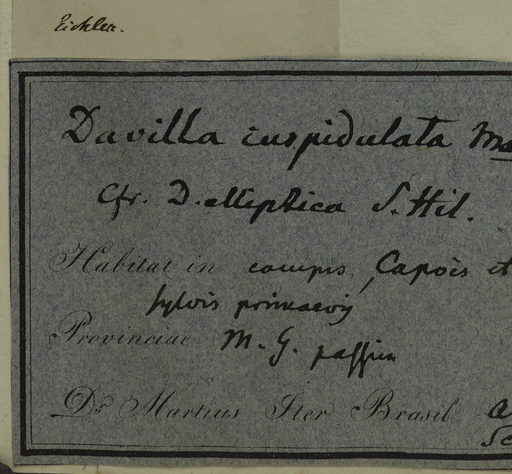 Eichler.
Davilla cuspidulata Ma
Cfr. D. elliptica S. Hil.
Habitat in campis, Capões et
sylvis primaevis
Provinciae M. G. passim
Dr Martius Iter Brasil.